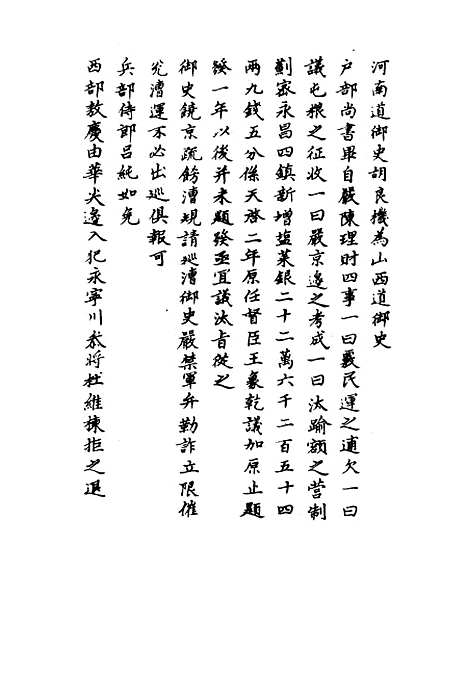 河南道御史胡良機為山西道御史
户部尚書畢自嚴陳理財四事一曰嚴民運之逋欠一曰
議屯糧之征收一曰嚴京邊之考成一曰汰踰額之營制
薊密永昌四鎮新增塩菜銀二十二萬六千二百五十四
兩九錢五分係天啓二年原任督臣王象乾議加原止題
發一年以後并未題發亟宜議汰旨從之
御史饒京疏飭漕規請巡漕御史嚴禁軍弁勒詐立限催
兊漕運不必出巡俱報可
兵部侍郎吕純如免
西部敖慶由華尖邊入犯永寧川叅將杜維棟拒之退